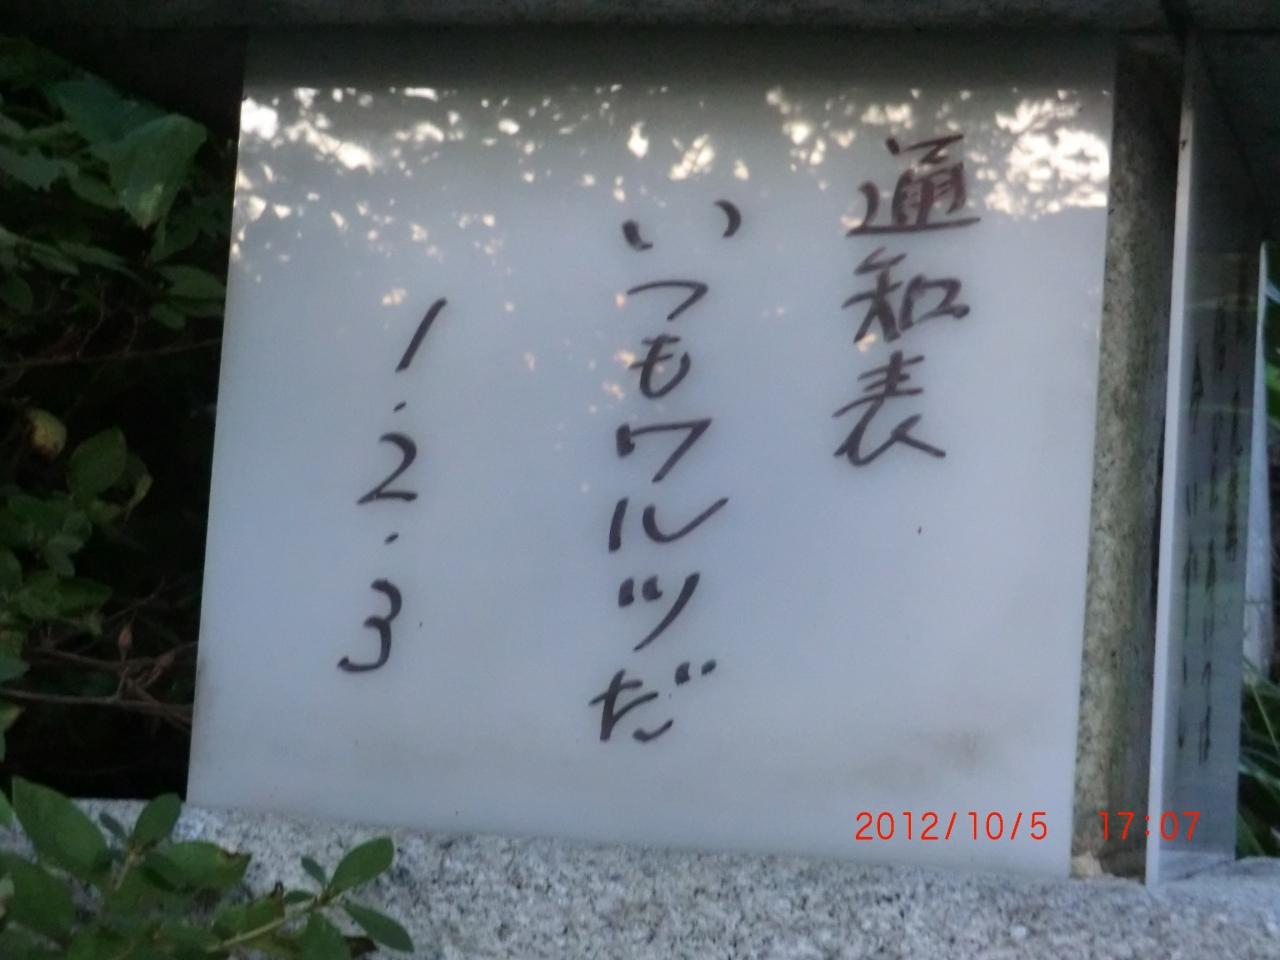 通知表
いつもワルツだ
1.2.3
2012/10/5 17:07